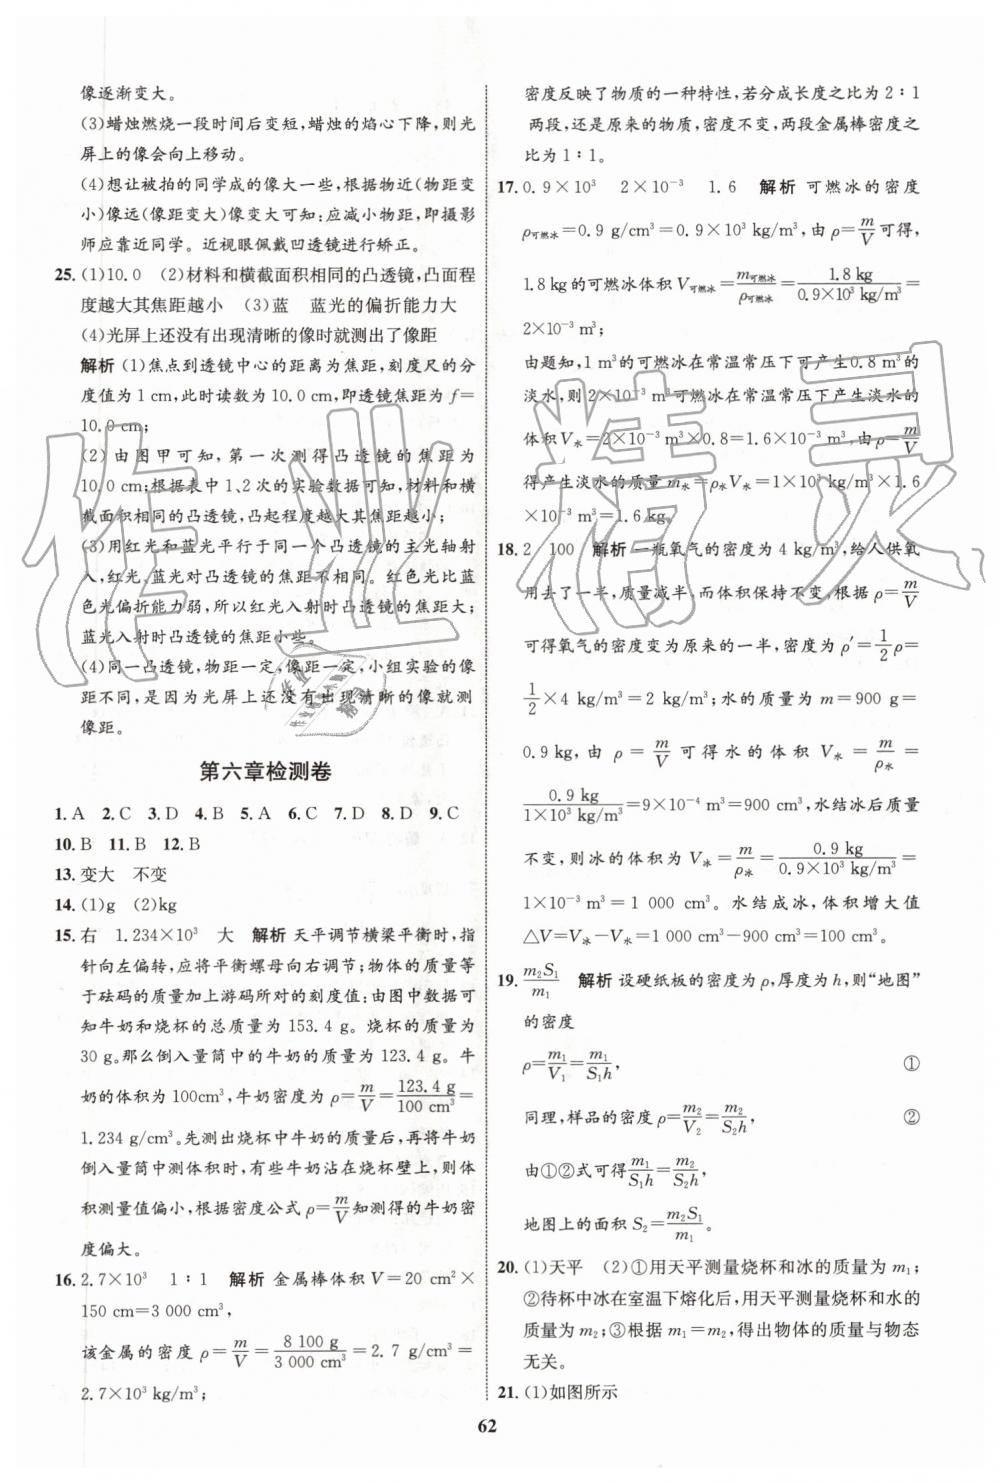 像逐渐变大。
(3)蜡烛燃烧一段时间后变短,蜡烛的焰心下降,则光
屏上的像会向上移动。
(4)想让被拍的同学成的像大一些,根据物近(物距变
小)像远(像距变大)像变大可知:应减小物距,即摄影
师应靠近同学。近视眼佩戴凹透镜进行矫正。
25. (1)10.0 (2)材料和横截面积相同的凸透镜,凸面程
度越大其焦距越小 (3)蓝 蓝光的偏折能力大
(4)光屏上还没有出现清晰的像时就测出了像距
解析 (1)焦点到透镜中心的距离为焦距,刻度尺的分
度值为1 cm,此时读数为10.0 cm,即透镜焦距为f=
10.0 cm;
(2)由图甲可知,第一次测得凸透镜的焦距为
10.0 cm;根据表中1、2次的实验数据可知,材料和横
截面积相同的凸透镜,凸起程度越大其焦距越小;
(3)用红光和蓝光平行于同一凸透镜的主光轴射
入,红光、蓝光对凸透镜的焦距不相同。红色光比蓝
色光偏折能力弱,所以红光入射时凸透镜的焦距大;
蓝光入射时凸透镜的焦距小些。
(4)同一凸透镜,物距一定,像距一定,小组实验的像
距不同,是因为光屏上还没有出现清晰的像就测
像距。
第六章检测卷
1. A 2. C 3. D 4. B 5. A 6. C 7. D 8. D 9. C
10. B 11. B 12. B
13. 变大 不变
14. (1)g (2)kg
15. 右 1.234×10³ 大 解析 天平调节横梁平衡时,指
针向左偏转,应将平衡螺母向右调节;物体的质量等
于砝码的质量加上游码所对的刻度值;由图中数据可
知牛奶和烧杯的总质量为153.4 g。烧杯的质量为
30 g。那么倒入量筒中的牛奶的质量为123.4 g。牛
奶的体积为100cm³,牛奶密度为ρ=m/V=123.4 g/100 cm³=
1.234 g/cm³。先测出烧杯中牛奶的质量后,再将牛奶
倒入量筒中测体积时,有些牛奶沾在烧杯壁上,则体
积测量值偏小,根据密度公式ρ=m/V知测得的牛奶密
度偏大。
16. 2.7×10³ 1∶1 解析 金属棒体积V=20 cm²×
150 cm=3 000 cm³,
该金属的密度ρ=m/V=8 100 g/3 000 cm³=2.7 g/cm³=
2.7×10³ kg/m³;
密度反映了物质的一种特性,若分成长度之比为2∶1
两段,还是原来的物质,密度不变,两段金属棒密度之
比为1∶1。
17. 0.9×10³ 2×10⁻³ 1.6 解析 可燃冰的密度
ρ可燃冰=0.9 g/cm³=0.9×10³ kg/m³,由ρ=m/V可得,
1.8 kg的可燃冰体积V可燃冰=m可燃冰/ρ可燃冰=1.8 kg/0.9×10³ kg/m³=
2×10⁻³ m³;
由题知,1 m³的可燃冰在常温常压下可产生0.8 m³的
淡水,则2×10⁻³ m³可燃冰在常温常压下可产生淡水的
体积V水=2×10⁻³ m³×0.8=1.6×10⁻³ m³,由ρ=m/V
得产生淡水的质量m水=ρ水V水=1×10³ kg/m³×1.6
×10⁻³ m³=1.6 kg。
18. 2 100 解析 一瓶氧气的密度为4 kg/m³,给人供氧
用去了一半,质量减半,而体积保持不变,根据ρ=m/V
可得氧气的密度变为原来的一半,即为ρ′=1/2ρ=
1/2×4 kg/m³=2 kg/m³;水的质量为m=900 g=
0.9 kg,由ρ=m/V可得水的体积V水=m/ρ水=
0.9 kg/1×10³ kg/m³=9×10⁻⁴ m³=900 cm³,水结冰后质量
不变,则冰的体积为V冰=m/ρ冰=0.9 kg/0.9×10³ kg/m³=
1×10⁻³ m³=1 000 cm³。水结成冰,体积增大值
△V=V冰-V水=1 000 cm³-900 cm³=100 cm³。
19. m₂S₁/m₁ 解析 设硬纸板的密度为ρ,厚度为h,则“地图”
的密度
ρ=m₁/V₁=m₁/S₁h, ①
同理,样品的密度ρ=m₂/V₂=m₂/S₂h, ②
由①②式可得m₁/S₁h=m₂/S₂h,
地图上的面积S₂=m₂S₁/m₁。
20. (1)天平 (2)①用天平测量烧杯和冰的质量为m₁;
②待杯中冰在室温下熔化后,用天平测量烧杯和水的
质量为m₂;③根据m₁=m₂,得出物体的质量与物态
无关。
21. (1)如图所示
62
作业精灵